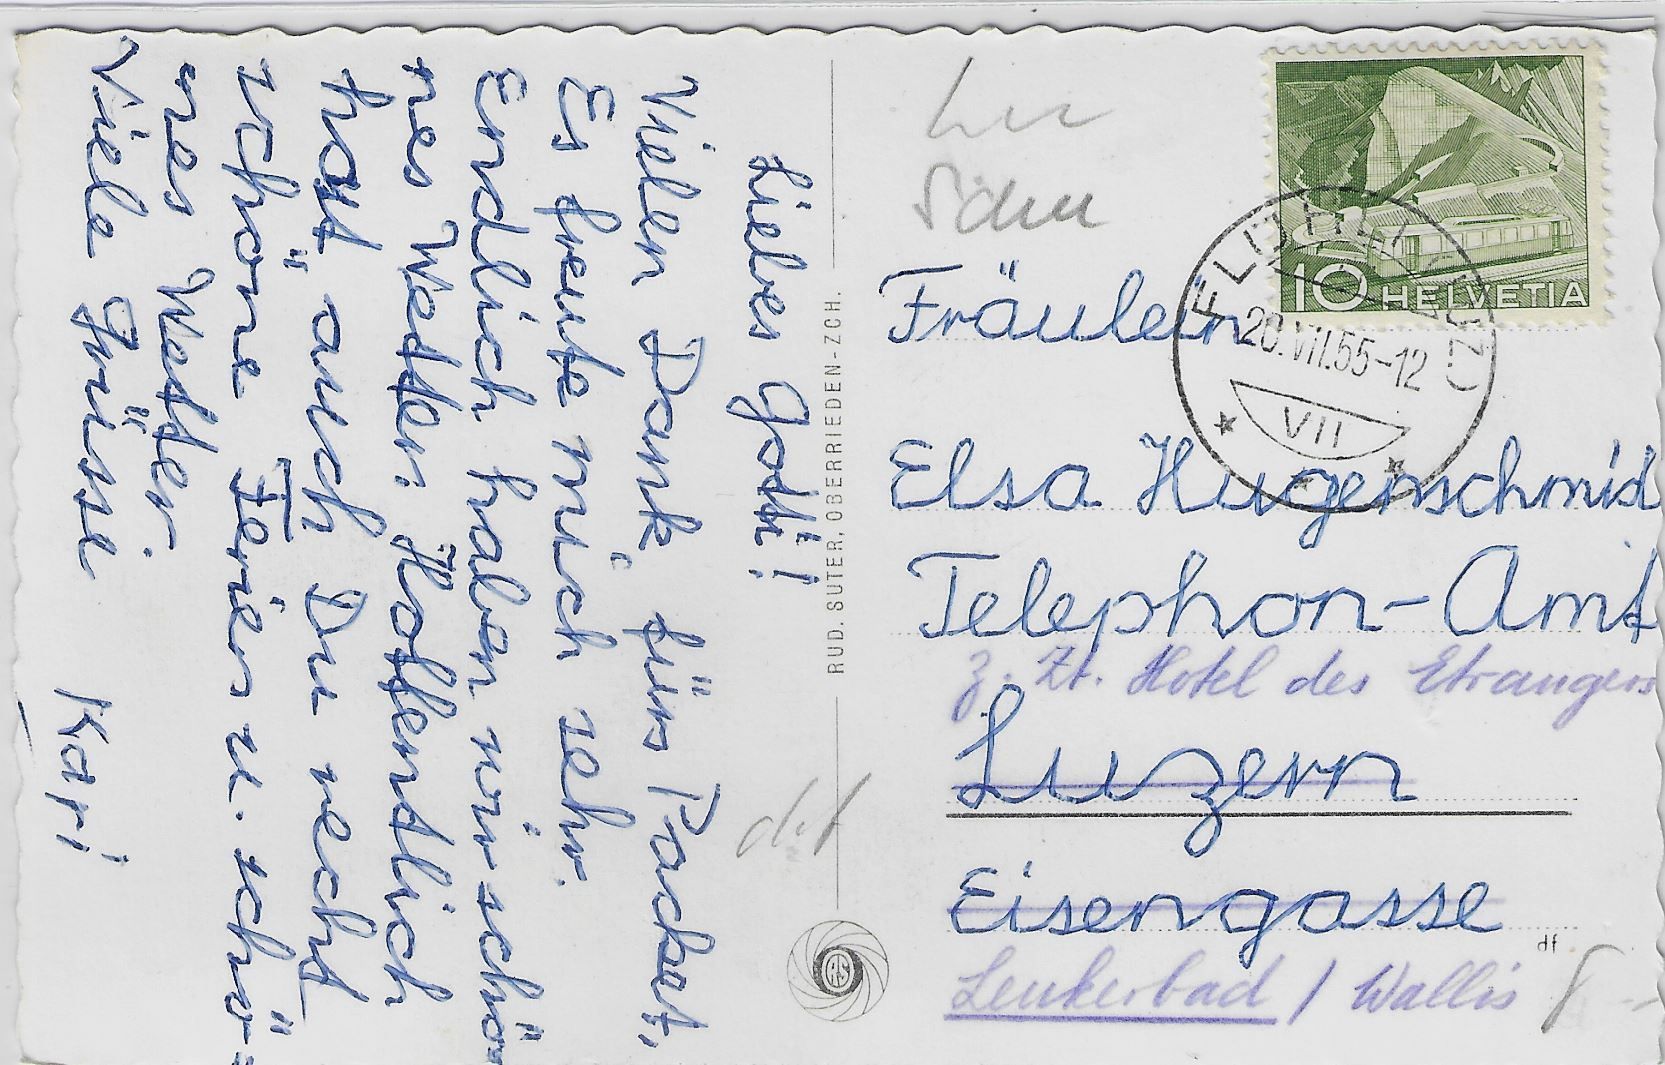 Liebes Gotti!
Vielen Dank fürs Packet,
Es freute mich sehr.
Endlich haben wir schö-
nes Wetter. Hoffentlich
hast auch Du recht
schöne Ferien u. schö-
nes Wetter.
Viele Grüsse
Kari
RUD. SUTER, OBERRIEDEN-ZCH.
RS
10 HELVETIA
20.VII.55-12
VII
Fräulein
Elsa Hugenschmid
Telephon-Amt
z. Zt. Hotel des Etrangers
Luzern
Eisengasse
df
Leukerbad / Wallis